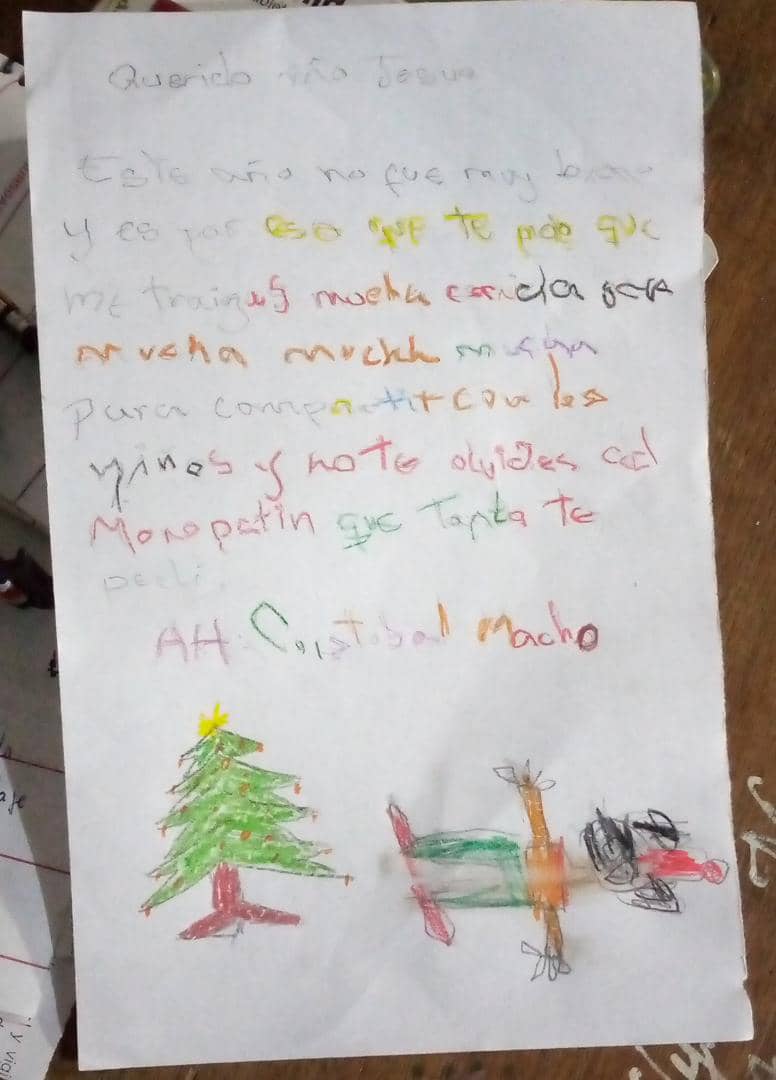 Querido niño Jesus
Este año no fue muy bueno
y es por eso que te pido que
me traigas mucha comida pera
mucha mucha mucha
para compartir con los
niños y no te olvides del
Monopatin que tanto te
pedi.
Att: Cristobal Macho